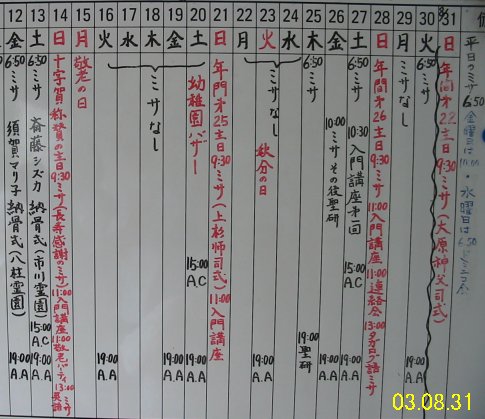 12 13 14 15 16 17 18 19 20 21 22 23 24 25 26 27 28 29 30 8/31
金 土 日 月 火 水 木 金 土 日 月 火 水 木 金 土 日 月 火 日
平日のミサ 6:50 金曜日は 10:00・水曜日は 6:50
年間第22主日 9:30 ミサ(大原神父司式)
6:50 ミサ
ミサなし
年間第26主日 9:30 ミサ 11:00 入門講座 11:00 連絡会 13:00 タガログ語ミサ
10:30 入門講座第一回 15:00 A.C 19:00 A.A
10:00 ミサ その後聖研 19:00 A.A
19:00 聖研
ミサなし
秋分の日 19:00 A.A
年間第25主日 9:30 ミサ(上杉師司式) 11:00 入門講座
幼稚園バザー 15:00 A.C 19:00 A.A
19:00 A.A
ミサなし
19:00 A.A
敬老の日
十字架称賛の主日 9:30 ミサ(長寿感謝のミサ) 11:00 入門講座 11:00 敬老パーティ 13:00 英語ミサ
6:50 ミサ 斎藤シズカ 納骨式(市川霊園) 15:00 A.C 19:00 A.A
6:50 ミサ 須賀マリ子 納骨式(八柱霊園) 19:00 A.A
19:00 A.A
03.08.31